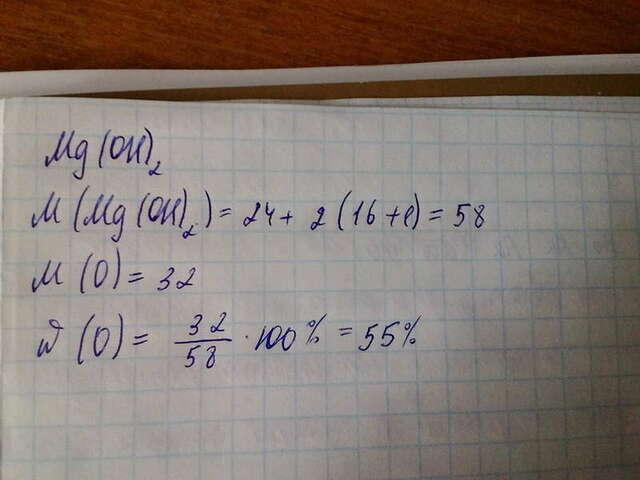 Mg(OH)₂
M(Mg(OH)₂) = 24 + 2(16+1) = 58
M(O) = 32
ω(O) = 32/58 · 100% = 55%